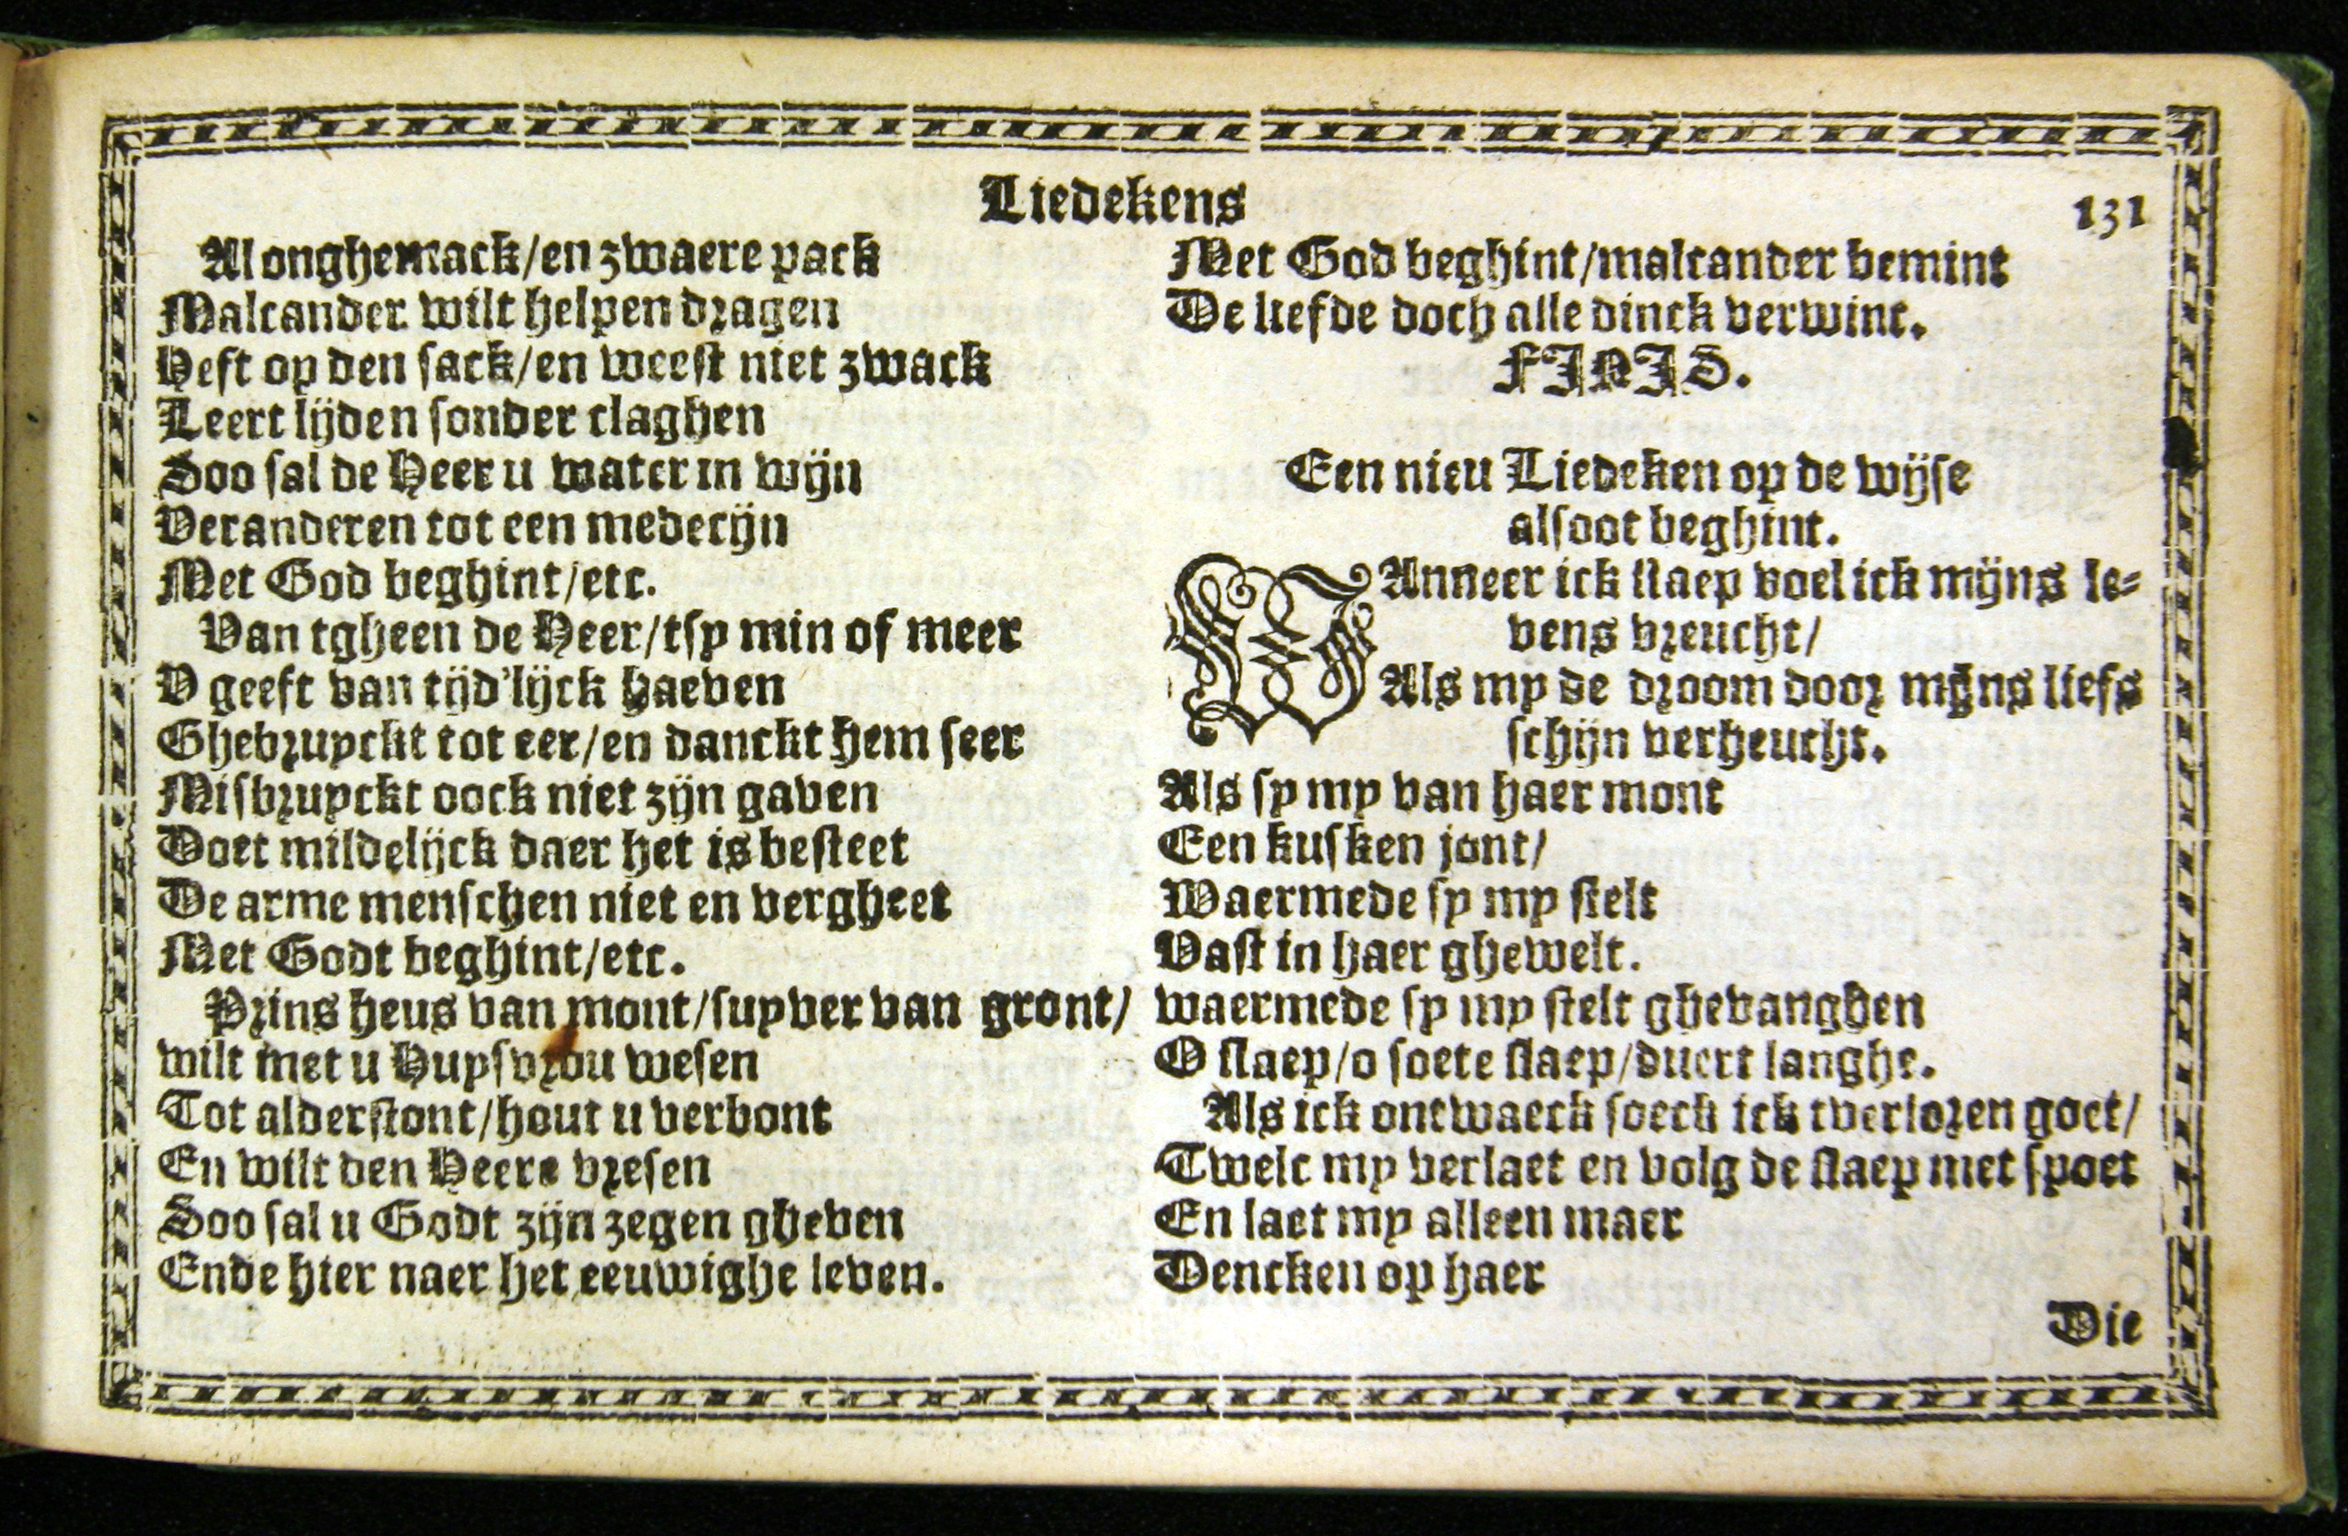 Liedekens
131
Al onghemack/en zwaere pack
Malcander wilt helpen dragen
Heft op den sack/en weest niet zwack
Leert lijden sonder claghen
Soo sal de Heer u water in wijn
Veranderen tot een medecijn
Met God beghint/etc.
Van tgheen de Heer/tsy min of meer
V geeft van tijd'lijck haeven
Ghebruyckt tot eer/en danckt hem seer
Misbruyckt oock niet zijn gaven
Doet mildelijck daer het is besteet
De arme menschen niet en vergheet
Met Godt beghint/etc.
Prins heus van mont/suyver van gront/
wilt met u Huysvrou wesen
Tot alderstont/hout u verbont
En wilt den Heere vresen
Soo sal u Godt zijn zegen gheven
Ende hier naer het eeuwighe leven.
Met God beghint/malcander bemint
De liefde doch alle dinck verwint.
FINIS.
Een nieu Liedeken op de wijse
alsoot beghint.
WAnneer ick slaep voel ick mijns le-
vens vreucht/
Als my de droom door mijns liefs
schijn verheucht.
Als sy my van haer mont
Een kusken jont/
Waermede sy my stelt
Vast in haer ghewelt.
waermede sy my stelt ghevanghen
O slaep/o soete slaep/duert langhe.
Als ick ontwaeck soeck ick tverloren goet/
Twelc my verlaet en volg de slaep met spoet
En laet my alleen maer
Dencken op haer
Die